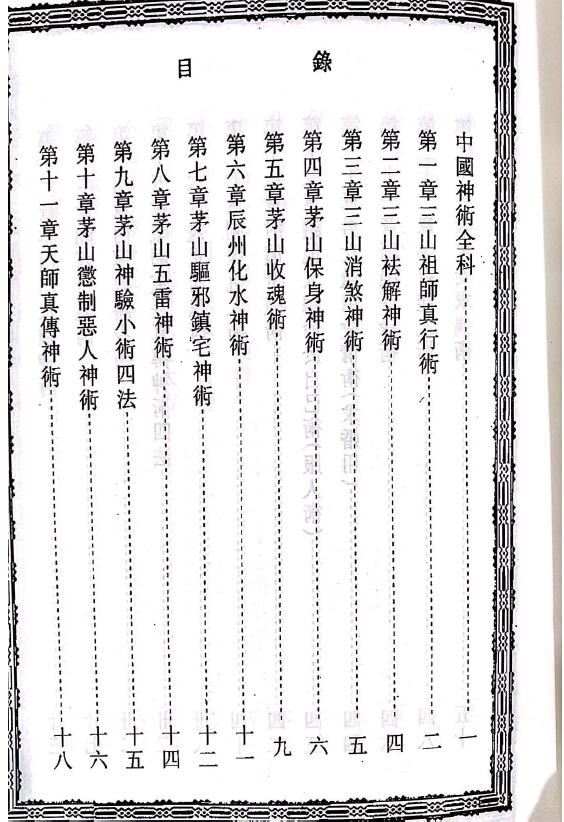 目錄
中國神術全科 一
第一章三山祖師真行術 二
第二章三山祛解神術 四
第三章三山消煞神術 五
第四章茅山保身神術 六
第五章茅山收魂術 九
第六章辰州化水神術 十一
第七章茅山驅邪鎮宅神術 十二
第八章茅山五雷神術 十四
第九章茅山神驗小術四法 十五
第十章茅山懲制惡人神術 十六
第十一章天師真傳神術 十八